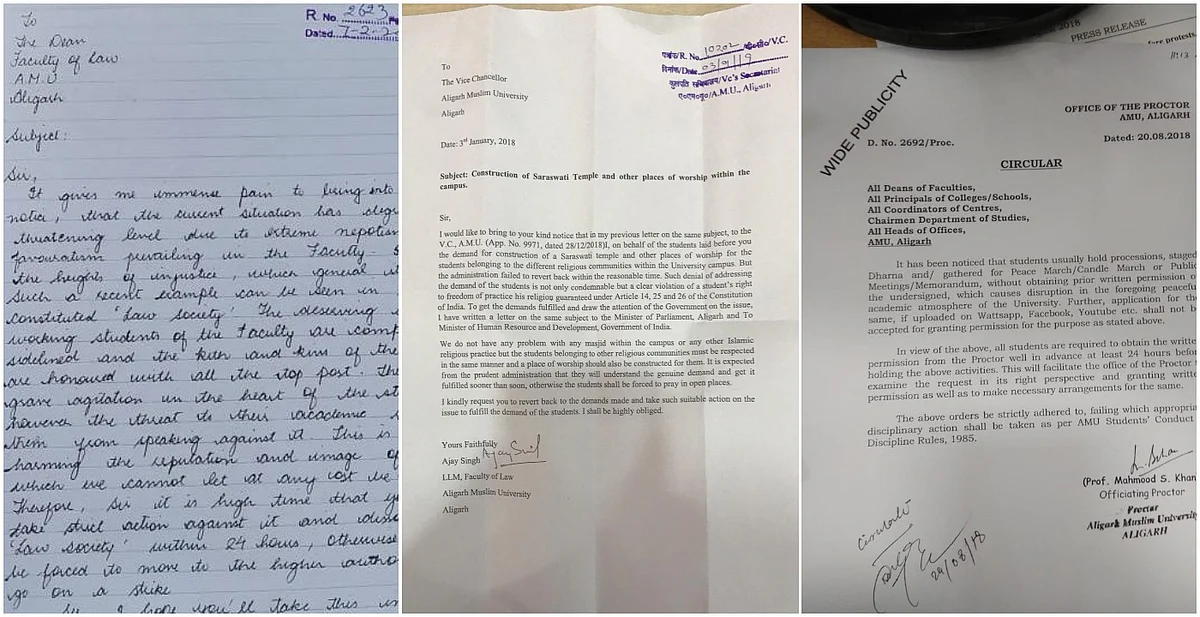 To
The Dean
Faculty of Law
A.M.U
Aligarh
R. No. 2623
Dated. 7-2-2
Subject:
Sir,
It gives me immense pain to bring into
notice, that the current situation has degr
threatening level due to extreme nepotism
favouratism prevailing in the Faculty.
the heights of injustice, which general
such a recent example can be seen in
constituted 'Law Society'. The deserving
working students of the Faculty are comp
sidelined and the keth and kins of the
are honoured with all the top post. The
grave agitation in the heart of the st
however the threat to their acacademic
them from speaking against it. This is
harming the reputation and image of
which we cannot let at any cost we
Therefore, Sir it is high time that y
take strict action against it and
'Law Society' within 24 hours, otherwise
be forced to move to the higher autho
go on a strike
I hope you'll take this
To
The Vice Chancellor
Aligarh Muslim University
Aligarh
R. No. 10202 V.C.
दिनांक/Date 03/01/19
कुलपति सचिवालय/Vc's Secretariat
ए०एम०यू०/A.M.U., Aligarh
Date: 3rd January, 2018
Subject: Construction of Saraswati Temple and other places of worship within the
campus.
Sir,
I would like to bring to your kind notice that in my previous letter on the same subject, to the
V.C., A.M.U. (App. No. 9971, dated 28/12/2018)I, on behalf of the students laid before you
the demand for construction of a Saraswati temple and other places of worship for the
students belonging to the different religious communities within the University campus. But
the administration failed to revert back within the reasonable time. Such denial of addressing
the demand of the students is not only condemnable but a clear violation of a student's right
to freedom of practice his religion guaranteed under Article 14, 25 and 26 of the Constitution
of India. To get the demands fulfilled and draw the attention of the Government on the issue,
I have written a letter on the same subject to the Minister of Parliament, Aligarh and To
Minister of Human Resource and Development, Government of India.
We do not have any problem with any masjid within the campus or any other Islamic
religious practice but the students belonging to other religious communities must be respected
in the same manner and a place of worship should also be constructed for them. It is expected
from the prudent administration that they will understand the genuine demand and get it
fulfilled sooner than soon, otherwise the students shall be forced to pray in open places.
I kindly request you to revert back to the demands made and take such suitable action on the
issue to fulfill the demand of the students. I shall be highly obliged.
Yours Faithfully
Ajay Singh
LLM, Faculty of Law
Aligarh Muslim University
Aligarh
2018
PRESS RELEASE
fore protests,
WIDE PUBLICITY
OFFICE OF THE PROCTOR
AMU, ALIGARH
D. No. 2692/Proc.
Dated: 20.08.2018
CIRCULAR
All Deans of Faculties,
All Principals of Colleges/Schools,
All Coordinators of Centres,
Chairmen Department of Studies,
All Heads of Offices,
AMU, Aligarh
It has been noticed that students usually hold processions, staged
Dharna and/ gathered for Peace March/Candle March or Public
Meetings/Memorandum, without obtaining prior written permission o
the undersigned, which causes disruption in the foregoing peacefu
academic atmosphere of the University. Further, application for the
same, if uploaded on Wattsapp, Facebook, Youtube etc. shall not b
accepted for granting permission for the purpose as stated above.
In view of the above, all students are required to obtain the writte
permission from the Proctor well in advance at least 24 hours befo
holding the above activities. This will facilitate the office of the Proctor
examine the request in its right perspective and granting writte
permission as well as to make necessary arrangements for the same.
The above orders be strictly adhered to, failing which appropria
disciplinary action shall be taken as per AMU Students' Conduct
Discipline Rules, 1985.
(Prof. Mahmood S. Khan
Officiating Proctor
Proctor
Aligarh Muslim University
ALIGARH
29/08/18